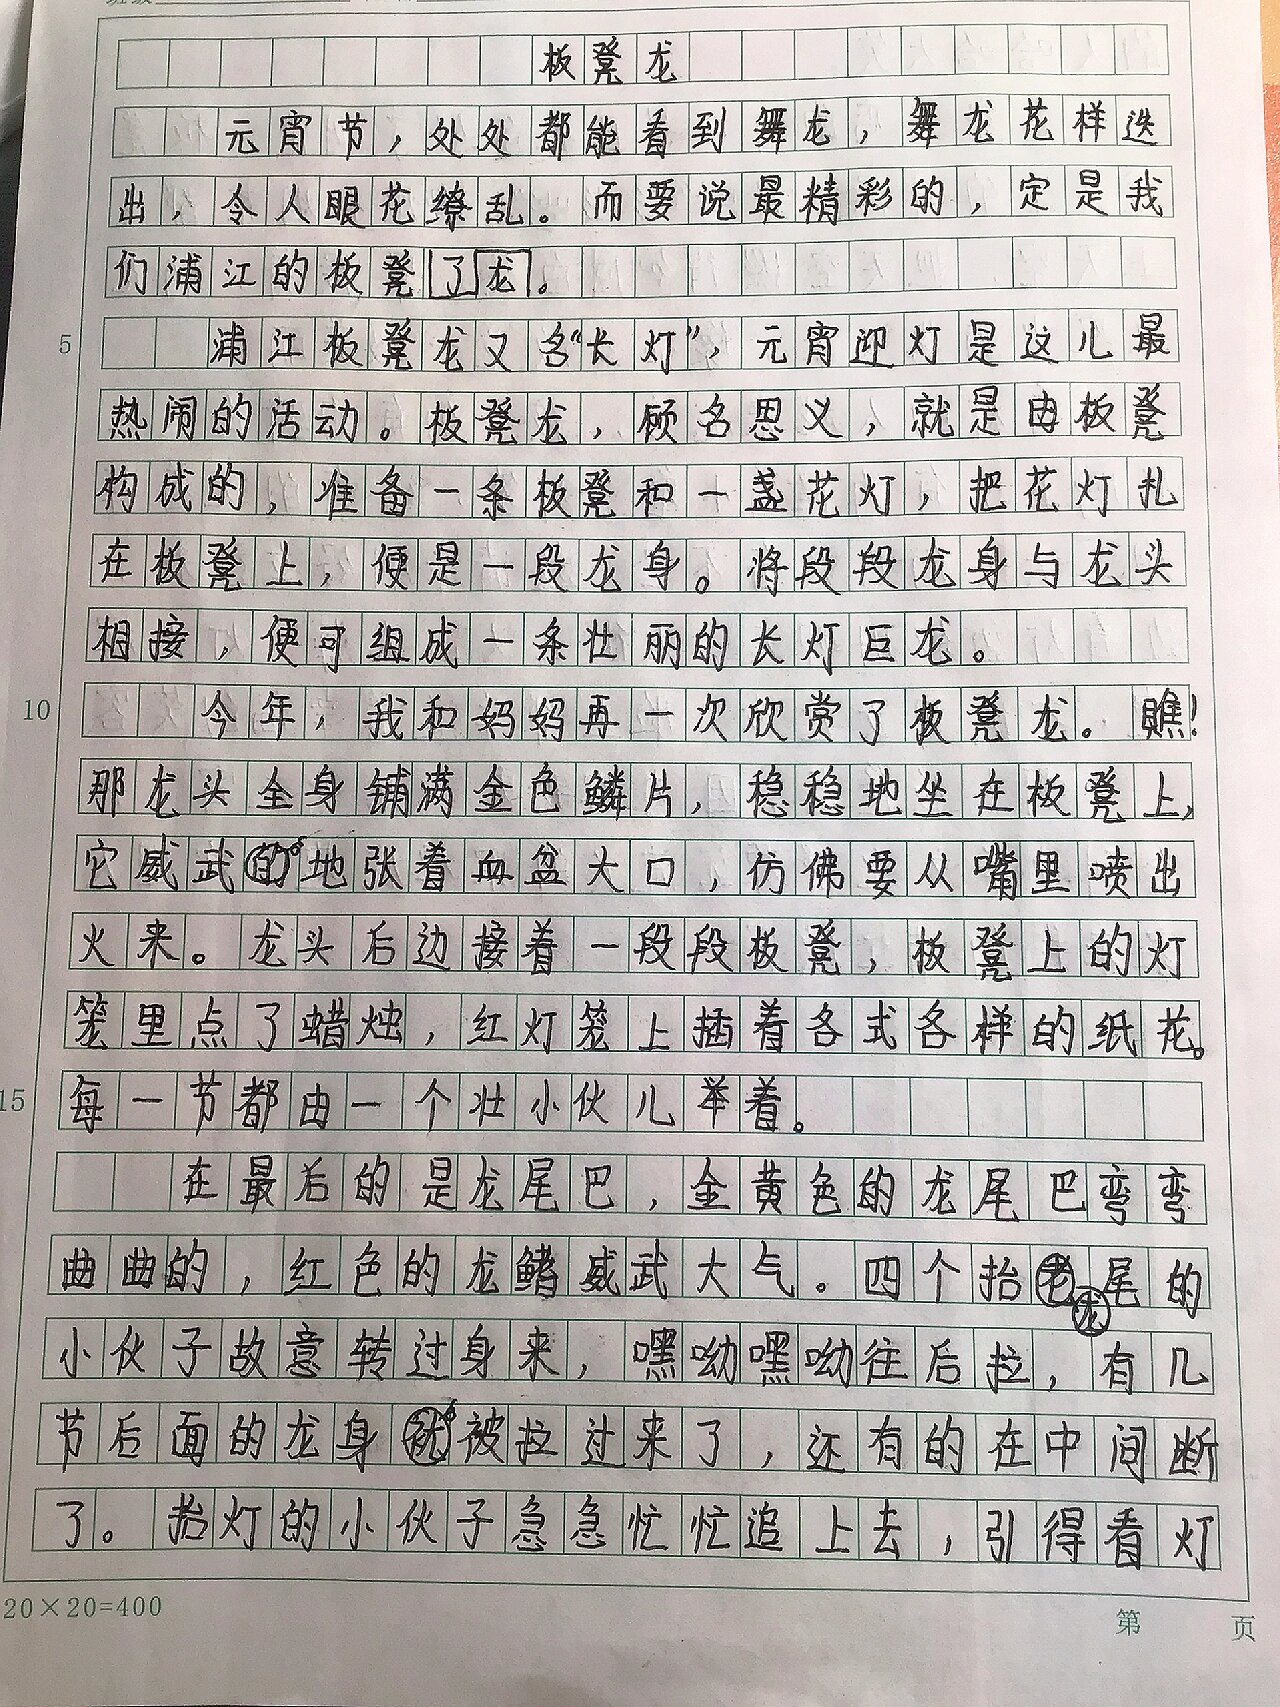 板凳龙
元宵节，处处都能看到舞龙，舞龙花样迭
出，令人眼花缭乱。而要说最精彩的，定是我
们浦江的板凳了龙。
5
浦江板凳龙又名“长灯”，元宵迎灯是这儿最
热闹的活动。板凳龙，顾名思义，就是由板凳
构成的，准备一条板凳和一盏花灯，把花灯扎
在板凳上，便是一段龙身。将段段龙身与龙头
相接，便可组成一条壮丽的长灯巨龙。
10
今年，我和妈妈再一次欣赏了板凳龙。瞧！
那龙头全身铺满金色鳞片，稳稳地坐在板凳上，
它威武地张着血盆大口，仿佛要从嘴里喷出
火来。龙头后边接着一段段板凳，板凳上的灯
笼里点了蜡烛，红灯笼上插着各式各样的纸花。
15
每一节都由一个壮小伙儿举着。
在最后的是龙尾巴，金黄色的龙尾巴弯弯
曲曲的，红色的龙鳍威武大气。四个抬龙尾的
小伙子故意转过身来，嘿呦嘿呦往后拉，有几
节后面的龙身被拉过来了，还有的在中间断
了。抬灯的小伙子急急忙忙追上去，引得看灯
20×20=400
第 页